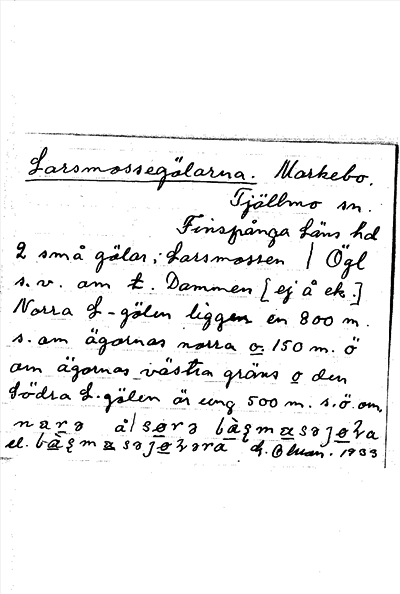 Larsmossegölarna. Markebo.
Tjällmo sn.
Finspånga läns hd
2 små gölar i Larsmossen / Ögl
s.v. om t. Dammen [ej å ek.]
Norra L-gölen ligger en 800 m.
s. om ägornas norra o. 150 m. ö
om ägornas västra gräns o den
Södra L-gölen är ung 500 m. s.ö. om,
narə å/ sørə
el.
1933